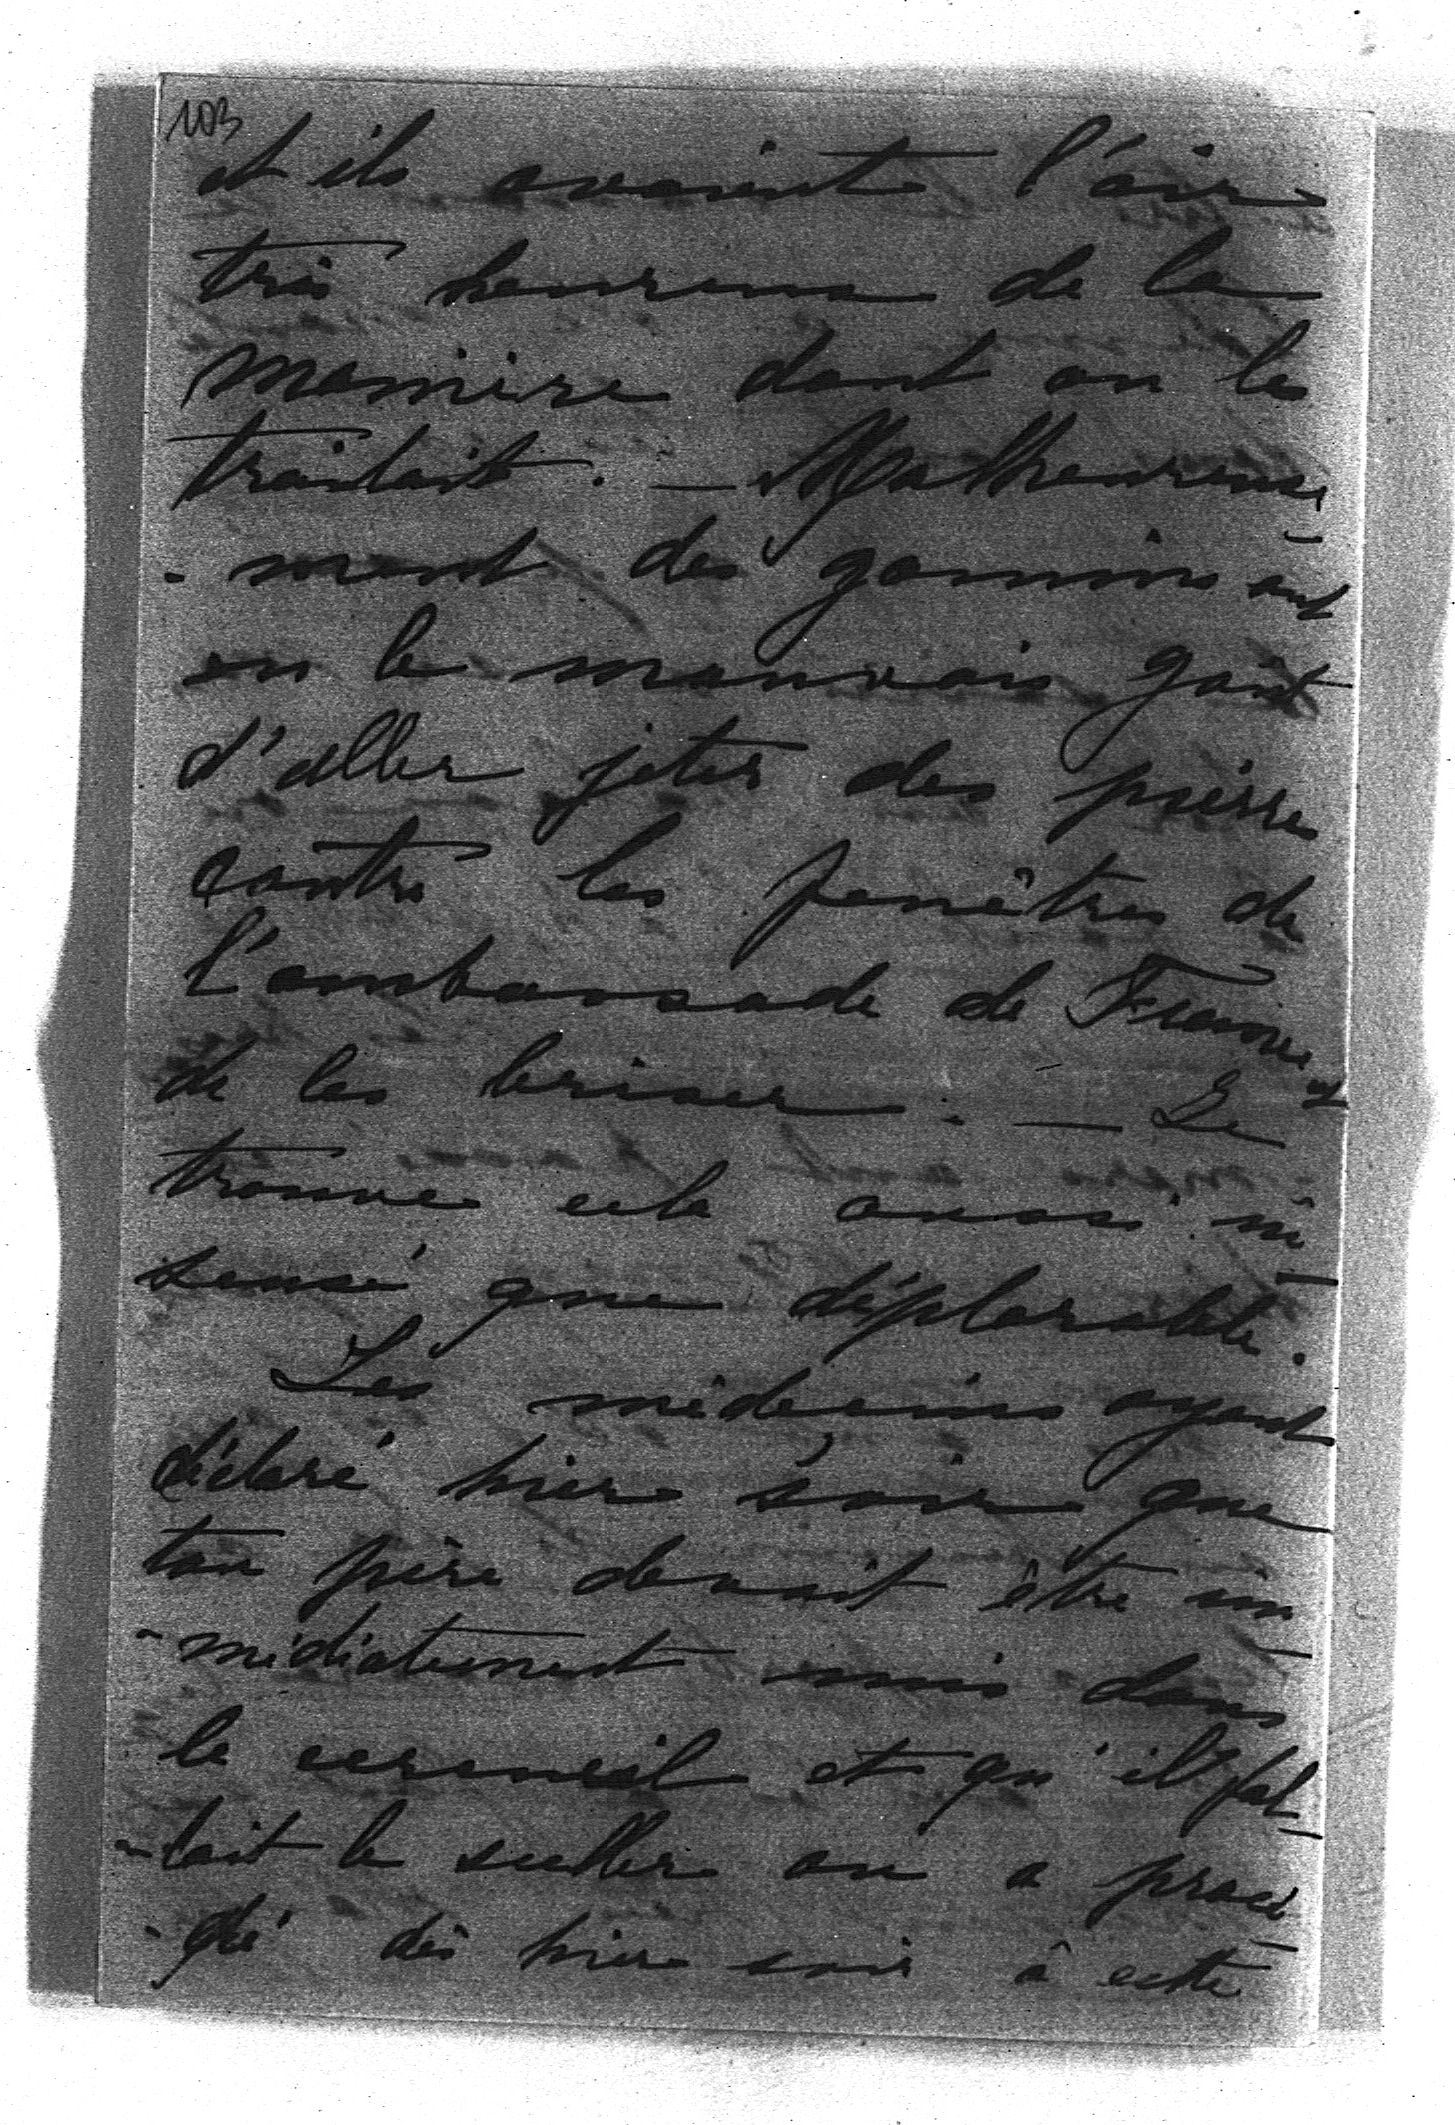 103
et ils avaient l'air
très heureux de la
manière dont on les
traitait. — Malheureuse-
-ment des gamins ont
eu le mauvais goût
d'aller jeter des pierres
contre les fenêtres de
l'ambassade de France et
de les briser. — Je
trouve cela aussi in-
sensé que déplorable.
Les médecins ayant
déclaré hier soir que
ton père devait être im-
-médiatement mis dans
le cercueil et qu'il fal-
-lait le sceller on a procé-
-dé dès hier soir à cette